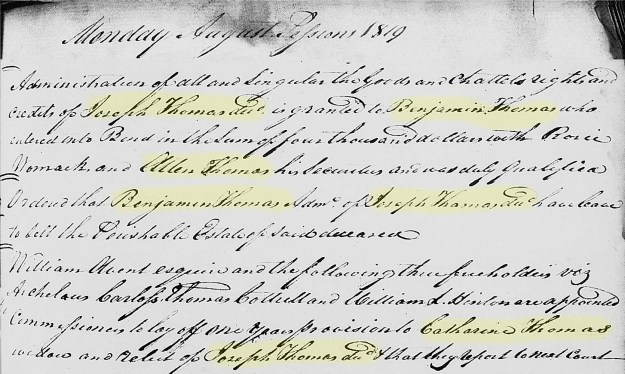 Monday August Sessions 1819
Administration of all and Singular the Goods and Chattels rights and
credits of Joseph Thomas decd. is granted to Benjamin Thomas who
entered into Bond in the Sum of four thousand dollars with
Womack and Allen Thomas his Securities and was duly Qualified
Ordered that Benjamin Thomas Admr. of Joseph Thomas decd. have leave
to Sell the Perishable Estate of said deceased
William Avent esquire and the following three freeholders viz
Archelaus Carloss, Thomas Cottrell and William L. Hinton are appointed
Commissioners to lay off one years provision to Catharine Thomas
widow and relict of Joseph Thomas decd. & that they report to Next Court